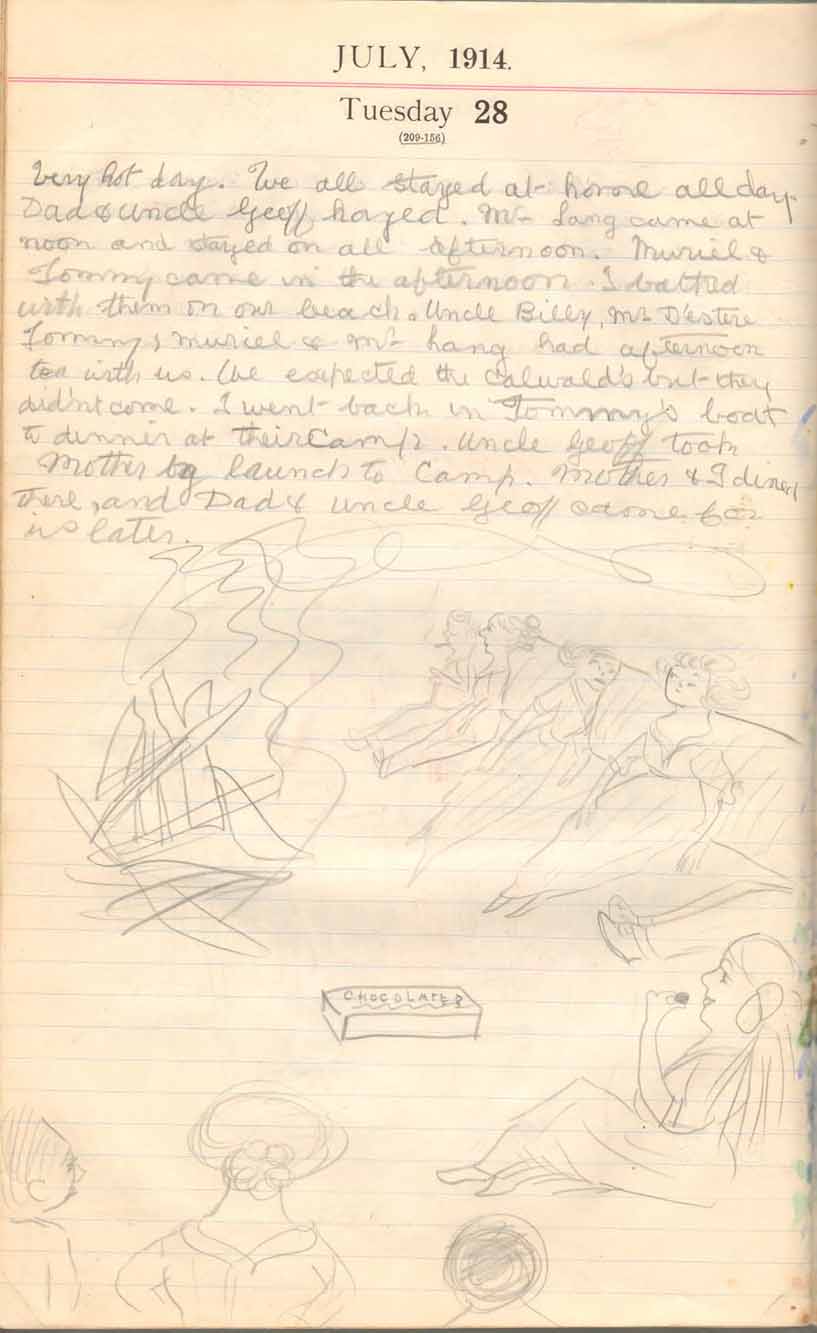 JULY, 1914.
Tuesday 28
(209-156)
Very hot day. We all stayed at home all day.
Dad & Uncle Geoff hayed. Mr Lang came at
noon and stayed on all afternoon. Muriel &
Tommy came in the afternoon. I bathed
with them on our beach. Uncle Billy, Mr D'estere
Tommy, Muriel & Mr Lang had afternoon
tea with us. We expected the but they
didn't come. I went back in Tommy's boat
to dinner at their Camp. Uncle Geoff took
Mother by launch to Camp. Mother & I dined
there, and Dad & Uncle Geoff come for
us later.
CHOCOLATES